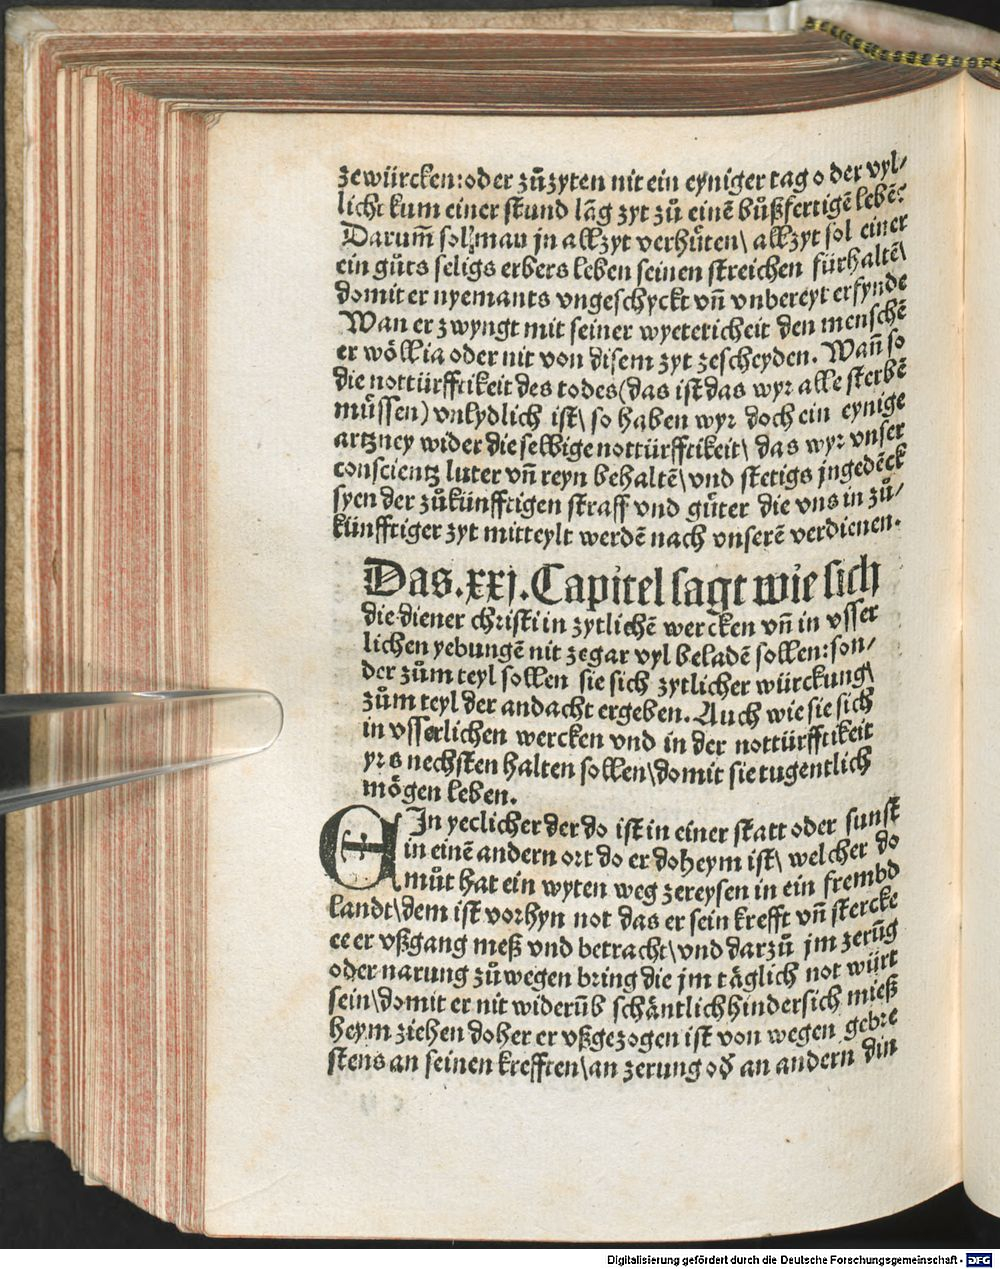 zewürcken: oder zůzyten nit ein eyniger tag oder vyl⸗
licht kum einer stund lāg zyt zů einē bůßfertigē lebē:
Darum̄ sol man jn allzyt verhůten\ allzyt sol einer
ein gůts seligs erbers leben seinen streichen fürhaltē\
domit er nyemants vngeschyckt vn̄ vnbereyt erfynde
Wan er zwyngt mit seiner wyetericheit den menschē
er wöll ia oder nit von disem zyt zescheyden. Wan̄ so
die nottürfftikeit des todes (das ist das wyr alle sterbē
müssen) vnlydlich ist\ so haben wyr doch ein eynige
artzney wider die selbige nottürfftikeit\ das wyr vnser
conscientz luter vn̄ reyn behaltē\ vnd stetigs jngedēck
syen der zůkünfftigen straff vnd gůter die vns in zů⸗
künfftiger zyt mitteylt werdē nach vnserē verdienen.
Das .xxj. Capitel sagt wie sich
die diener christi in zytlichē wercken vn̄ in vsser
lichen yebungē nit zegar vyl beladē sollen: son⸗
der zům teyl sollen sie sich zytlicher würckung\
zům teyl der andacht ergeben. Auch wie sie sich
in vsserlichen wercken vnd in der nottürfftikeit
yrs nechsten halten sollen\ domit sie tugentlich
mögen leben.
EIn yeclicher der do ist in einer statt oder sunst
in einē andern ort do er doheym ist\ welcher do
můt hat ein wyten weg zereysen in ein frembd
landt\ dem ist vorhyn not das er sein krefft vn̄ stercke
ee er vßgang meß vnd betracht\ vnd darzů jm zerūg
oder narung zůwegen bring die jm täglich not würt
sein\ domit er nit widerūb schäntlich hindersich mieß
heym ziehen doher er vßgezogen ist von wegen gebre
stens an seinen krefften\ an zerung od̄ an andern din
Digitalisierung gefördert durch die Deutsche Forschungsgemeinschaft - DFG